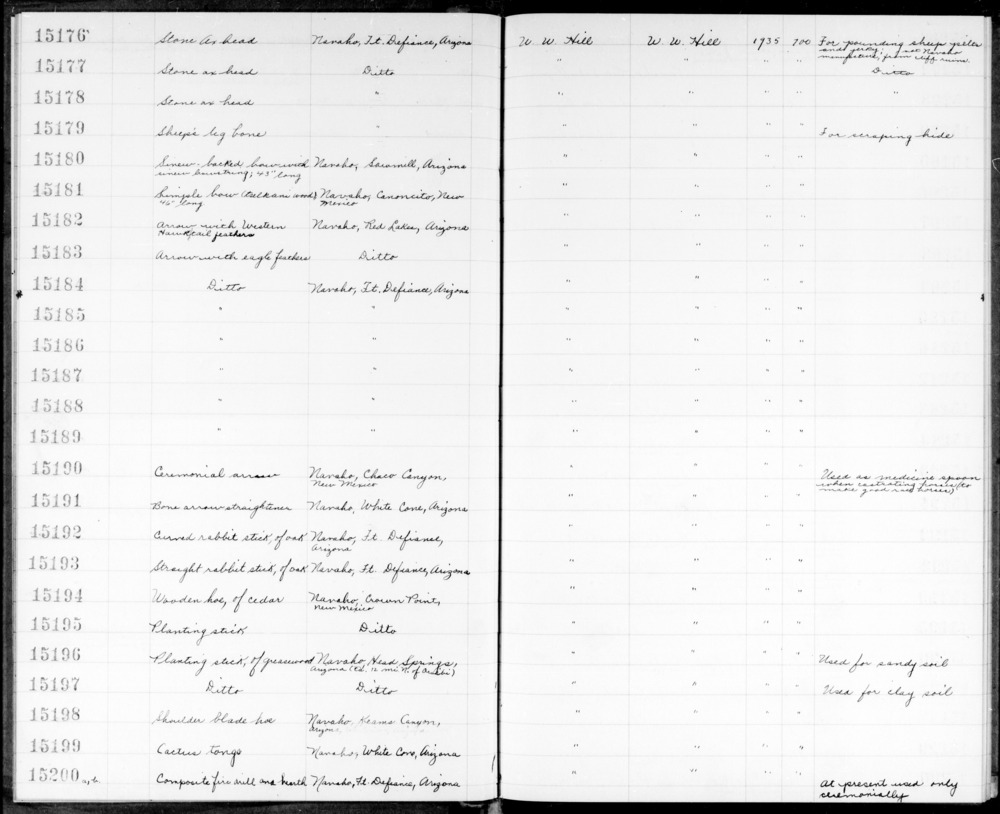 15176 Stone Ax head Navaho, Ft. Defiance, Arizona W. W. Hill W. W. Hill 1935 700 For pounding sheep pelts
and jerky; not Navaho
manufacture, from cliff ruins.
15177 Stone ax head Ditto " " " " Ditto
15178 Stone ax head " " " " " "
15179 Sheep's leg bone " " " " " For scraping hide
15180 Sinew-backed bow with Navaho, Sawmill, Arizona " " " "
sinew bowstring; 43" long
15181 Simple bow Navaho, Canoncito, New " " " "
46" long Mexico
15182 Arrow with Western Navaho, Red Lake, Arizona " " " "
Hawk tail feathers
15183 Arrow with eagle feathers Ditto " " " "
15184 Ditto Navaho, Ft. Defiance, Arizona " " " "
15185 " " " " " "
15186 " " " " " "
15187 " " " " " "
15188 " " " " " "
15189 " " " " " "
15190 Ceremonial arrow Navaho, Chaco Canyon, " " " " Used as medicine spoon
New Mexico when castrating horses (to
make good race horses)
15191 Bone arrow straightener Navaho, White Cone, Arizona " " " "
15192 Curved rabbit stick, of oak Navaho, Ft. Defiance, " " " "
Arizona
15193 Straight rabbit stick, of oak Navaho, Ft. Defiance, Arizona " " " "
15194 Wooden hoe, of cedar Navaho, Crown Point, " " " "
New Mexico
15195 Planting stick Ditto " " " "
15196 Planting stick, of greasewood Navaho, Head Springs, " " " " Used for sandy soil
Arizona (Ca. 12 mi. N. of Oraibi)
15197 Ditto Ditto " " " " Used for clay soil
15198 Shoulder blade hoe Navaho, Keams Canyon, " " " "
Arizona
15199 Cactus tongs Navaho, White Cone, Arizona " " " "
15200 a,b Composite fire drill and hearth Navaho, Ft. Defiance, Arizona " " " " At present used only
ceremonially